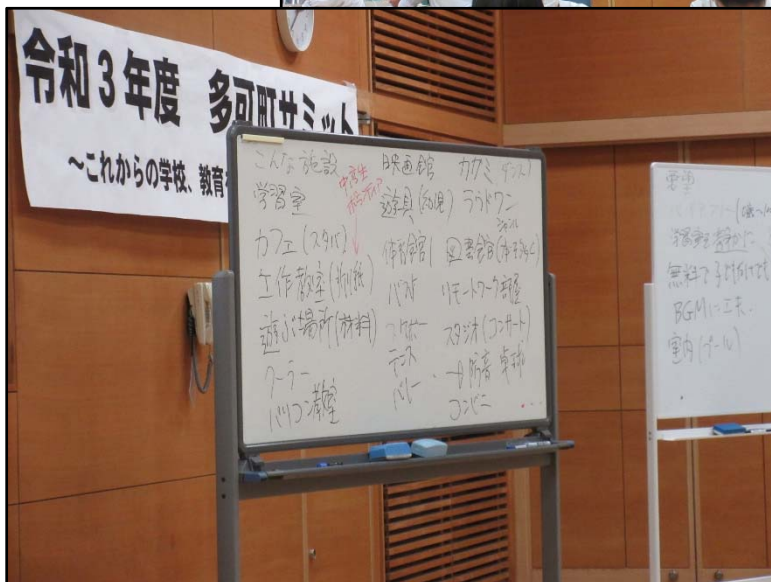 令和3年度 多可町サミット
～これからの学校、教育
こんな施設
学習室
カフェ(スタバ)
工作教室(折り紙)
遊ぶ場所(材料)
クーラー
パソコン教室
中高生
ボランティア
映画館
遊具(幼児)
体育館
バスケ
テニス
バレー
カガミ ダンス
ラウンドワン
ジャンル
図書館
リモートワーク部屋
スタジオ(コンサート)
→防音 卓球
コンビニ
要望
学習室
無料で
BGMに工夫
室内(プール)